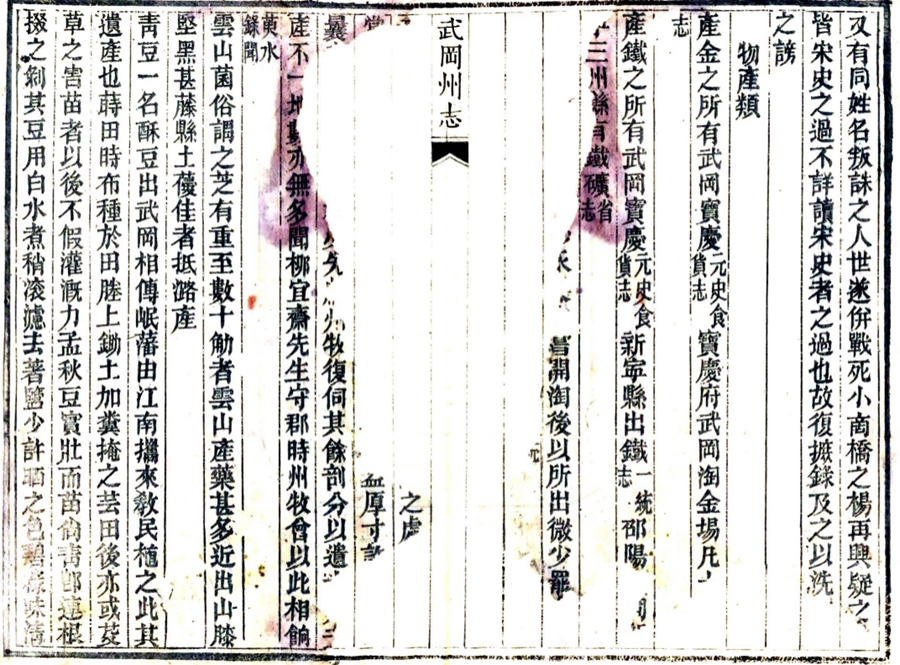 又有同姓名叛誅之人世遂併戰死小商橋之楊再興疑之
皆宋史之過不詳讀宋史者之過也故復摭錄及之以洗
之謗
物產類
產金之所有武岡寶慶元史食貨志寶慶府武岡淘金場凡
志
產鐵之所有武岡寶慶元史食貨志新寧縣出鐵一統志邵陽
三州縣有鐵礦省志
嘗開淘後以所出微少罷
武岡州志
之處
血厚寸許
州牧復伺其餘剖分以遺
產不一地數亦無多聞柳宜齋先生守郡時州牧曾以此相餉
黃水錄聞
雲山菌俗謂之芝有重至數十觔者雲山產藥甚多近出山膝
堅黑甚藤縣土薓佳者抵潞產
靑豆一名酥豆出武岡相傳岷藩由江南攜來敎民種之此其
遺產也蒔田時布種於田塍上鋤土加糞掩之芸田後亦或芟
草之害苗者以後不假灌漑力孟秋豆實壯而苗尙靑卽連根
掇之剝其豆用白水煮稍滾濾去著鹽少許晒之色碧樣味淸